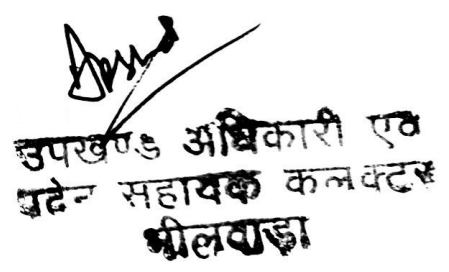 उपखण्ड अधिकारी एव
पदेन सहायक कलक्टर
भीलवाड़ा